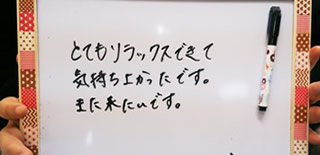 とてもリラックスできて
気持ち上かったです。
また来たいです。